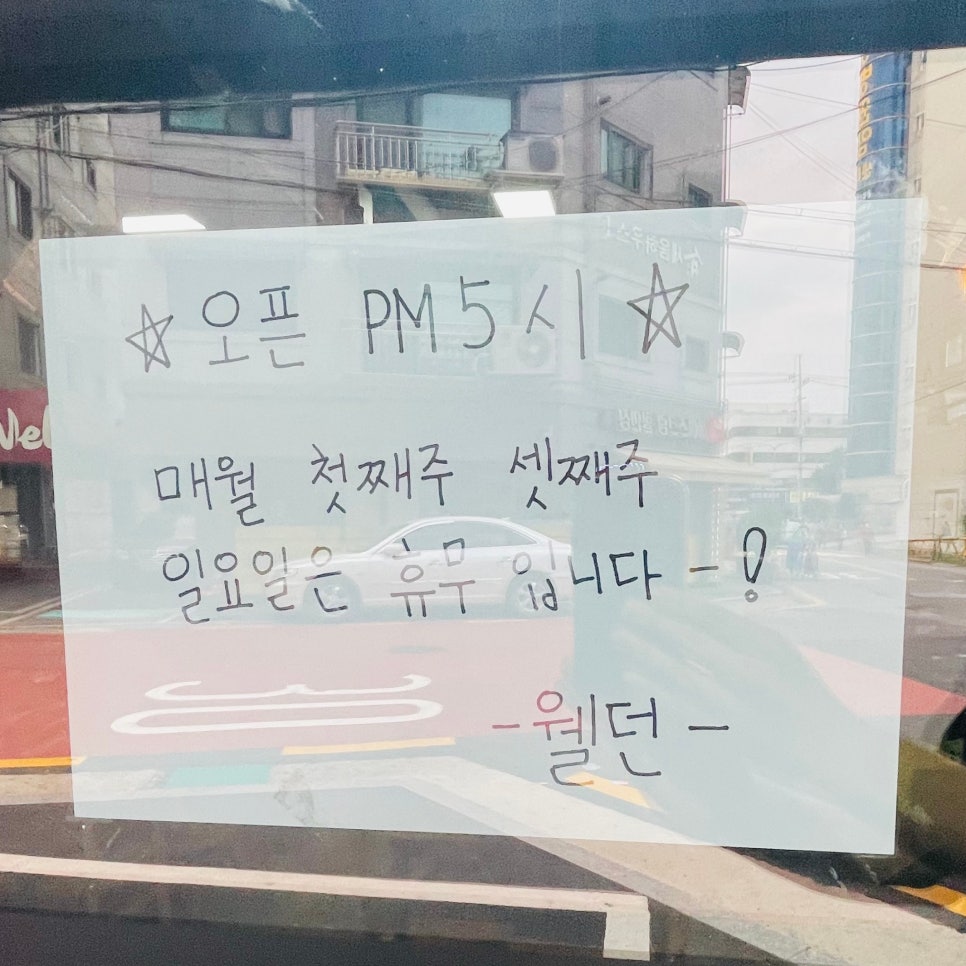 ☆오픈 PM 5시☆
매월 첫째주 셋째주
일요일은 휴무 입니다 - !
- 웰던 -
Wel